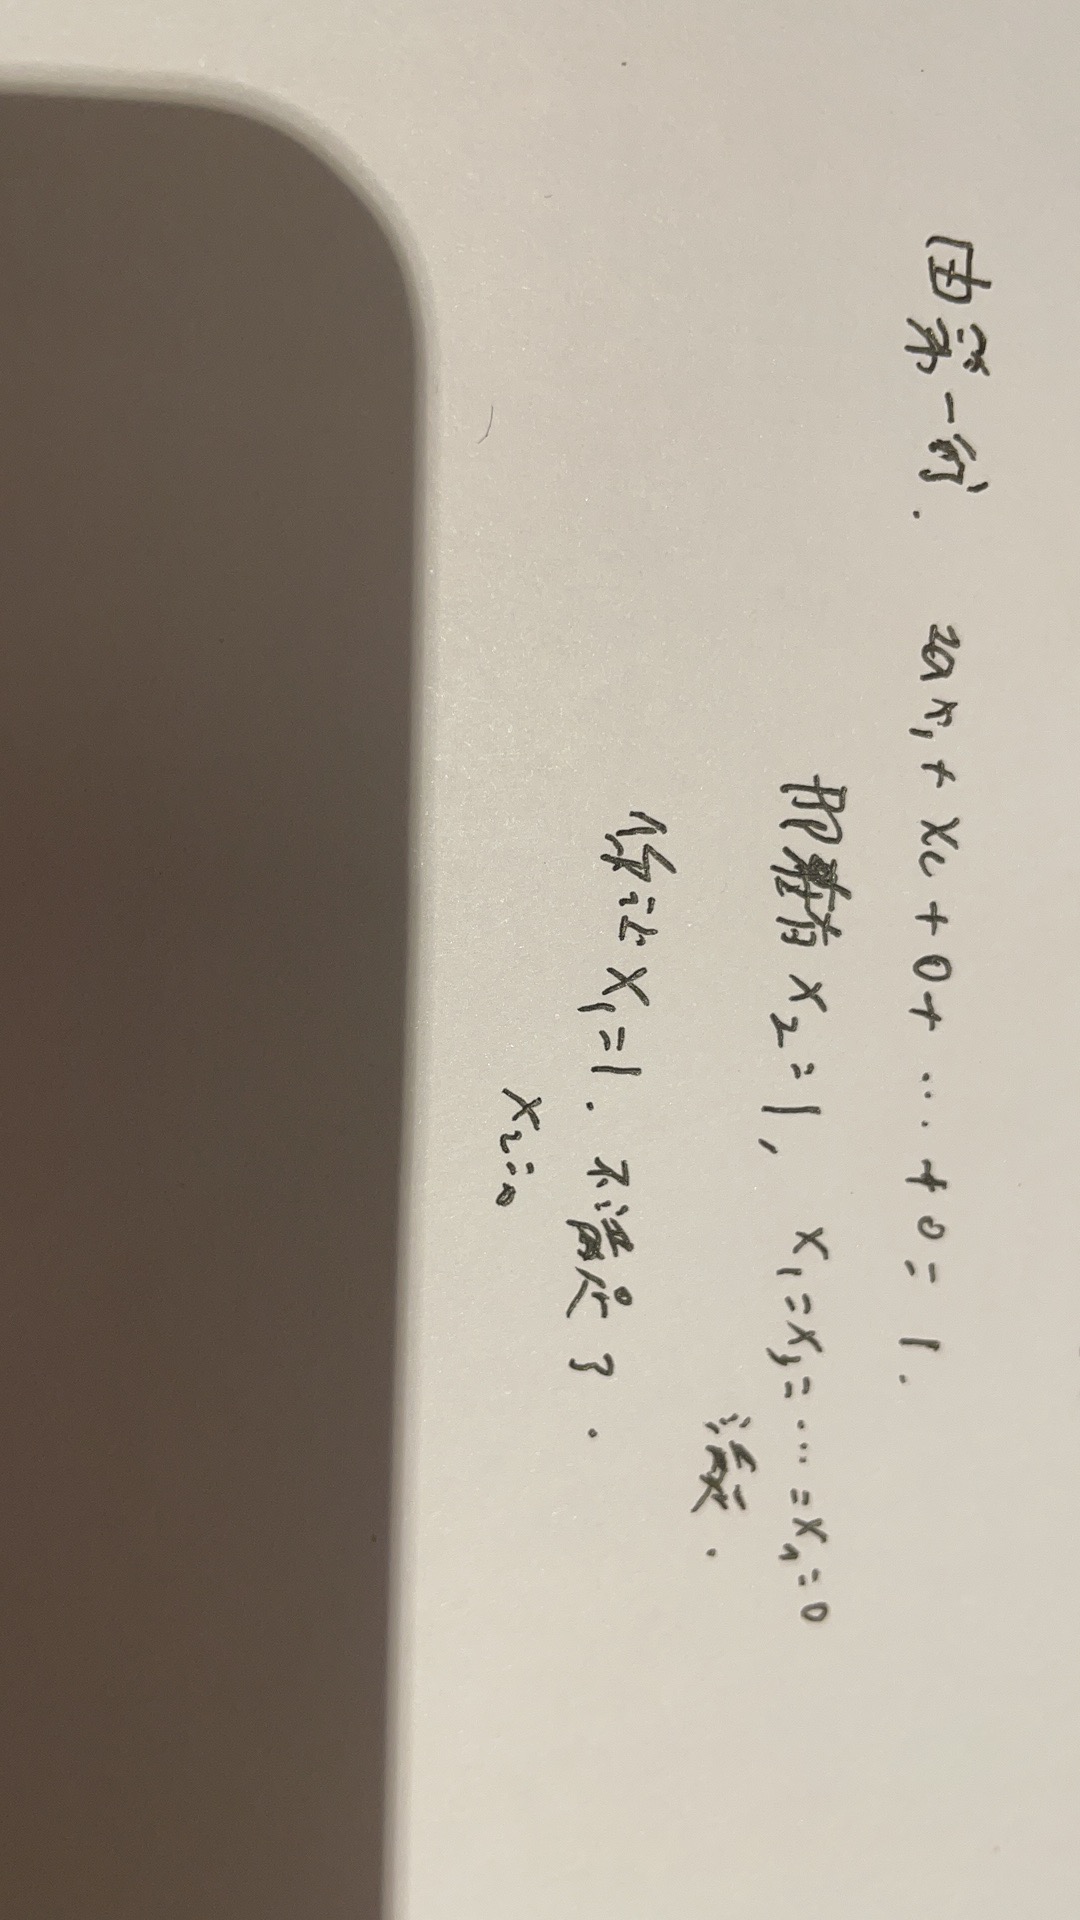 由第一行. 2ax₁ + x₂ + 0 + ⋯ + 0 = 1.
即有 x₂=1, x₁=x₃=⋯=x₁=0
满足.
你让 x₁=1. 不满足了.
x₂=0